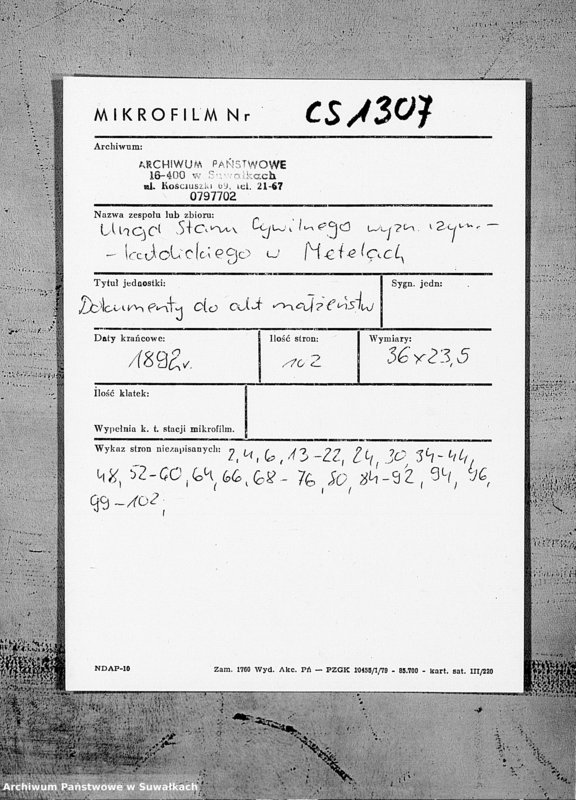 MIKROFILM Nr CS1307
Archiwum:
ARCHIWUM PAŃSTWOWE
16-400 w Suwałkach
ul. Kościuszki 69, tel. 21-67
0797702
Nazwa zespołu lub zbioru:
Urząd Stanu Cywilnego wyzn. rzym.-
-katolickiego w Metelach
Tytuł jednostki: Sygn. jedn:
Dokumenty do akt małżeństw
Daty krańcowe: Ilość stron: Wymiary:
1892r. 102 36x23,5
Ilość klatek:
Wypełnia k. t. stacji mikrofilm.
Wykaz stron niezapisanych: 2, 4, 6, 13-22, 24, 30, 34-44,
48, 52-60, 64, 66, 68-76, 80, 84-92, 94, 96,
99-102;
NDAP-10 Zam. 1760 Wyd. Akc. Pń — PZGK 10455/I/79 - 85.700 - kart. sat. III/220
Archiwum Państwowe w Suwałkach